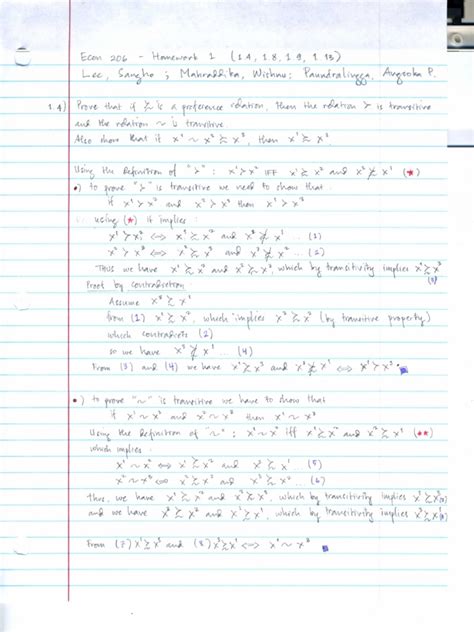 Econ 206 - Homework 1 (1.4, 1.8, 1.9, 1.13)
Lee, Sangho ; Mahraddika, Wishnu ; Paundralingga, Anggoka P.
1.4) Prove that if ≿ is a preference relation, then the relation ≻ is transitive
and the relation ~ is transitive.
Also show that if x¹ ~ x² ≿ x³, then x¹ ≿ x³.
Using the definition of "≻" : x¹ ≻ x² IFF x¹ ≿ x² and x² ⋡ x¹ (*)
•) to prove "≻" is transitive we need to show that
if x¹ ≻ x² and x² ≻ x³ then x¹ ≻ x³
using (*) it implies :
x¹ ≻ x² ⟺ x¹ ≿ x² and x² ⋡ x¹ ... (1)
x² ≻ x³ ⟺ x² ≿ x³ and x³ ⋡ x² ... (2)
Thus we have x¹ ≿ x² and x² ≿ x³, which by transitivity implies x¹ ≿ x³
(3)
Proof by contradiction
Assume x³ ≿ x¹
from (1) x¹ ≿ x², which implies x³ ≿ x² (by transitive property)
which contradicts (2)
so we have x³ ⋡ x¹ ... (4)
From (3) and (4) we have x¹ ≿ x³ and x³ ⋡ x¹ ⟺ x¹ ≻ x³
•) to prove "~" is transitive we have to show that
if x¹ ~ x² and x² ~ x³ then x¹ ~ x³
Using the definition of "~" : x¹ ~ x² iff x¹ ≿ x² and x² ≿ x¹ (**)
which implies :
x¹ ~ x² ⟺ x¹ ≿ x² and x² ≿ x¹ ... (5)
x² ~ x³ ⟺ x² ≿ x³ and x³ ≿ x² ... (6)
Thus, we have x¹ ≿ x² and x² ≿ x³, which by transitivity implies x¹ ≿ x³ (7)
and we have x³ ≿ x² and x² ≿ x¹, which by transitivity implies x³ ≿ x¹ (8)
From (7) x¹ ≿ x³ and (8) x³ ≿ x¹ ⟺ x¹ ~ x³